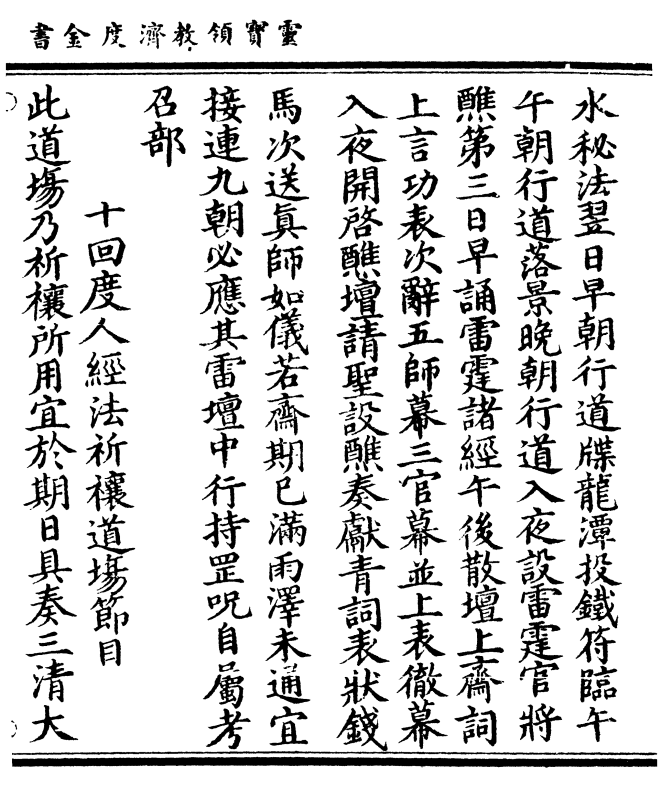 靈寶領教濟度金書
水秘法翌日早朝行道牒龍潭投鐵符臨午
午朝行道落景晚朝行道入夜設雷霆官將
醮第三日早誦雷霆諸經午後散壇上齋詞
上言功表次辭五師幕三官幕並上表徹幕
入夜開啓醮壇請聖設醮奏獻青詞表狀錢
馬次送眞師如儀若齋期已滿雨澤未通宜
接連九朝必應其雷壇中行持罡呪自屬考
召部
十回度人經法祈禳道塲節目
此道塲乃祈禳所用宜於期日具奏三清大